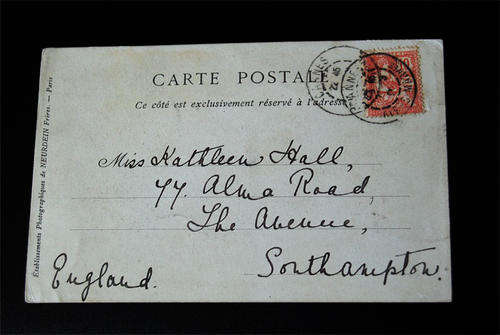 CARTE POSTALE
Ce côté est exclusivement réservé à l'adresse
Miss Kathleen Hall,
77. Alma Road,
The Avenue,
Southampton.
England.
Etablissements Photographiques de NEURDEIN Frères. — Paris